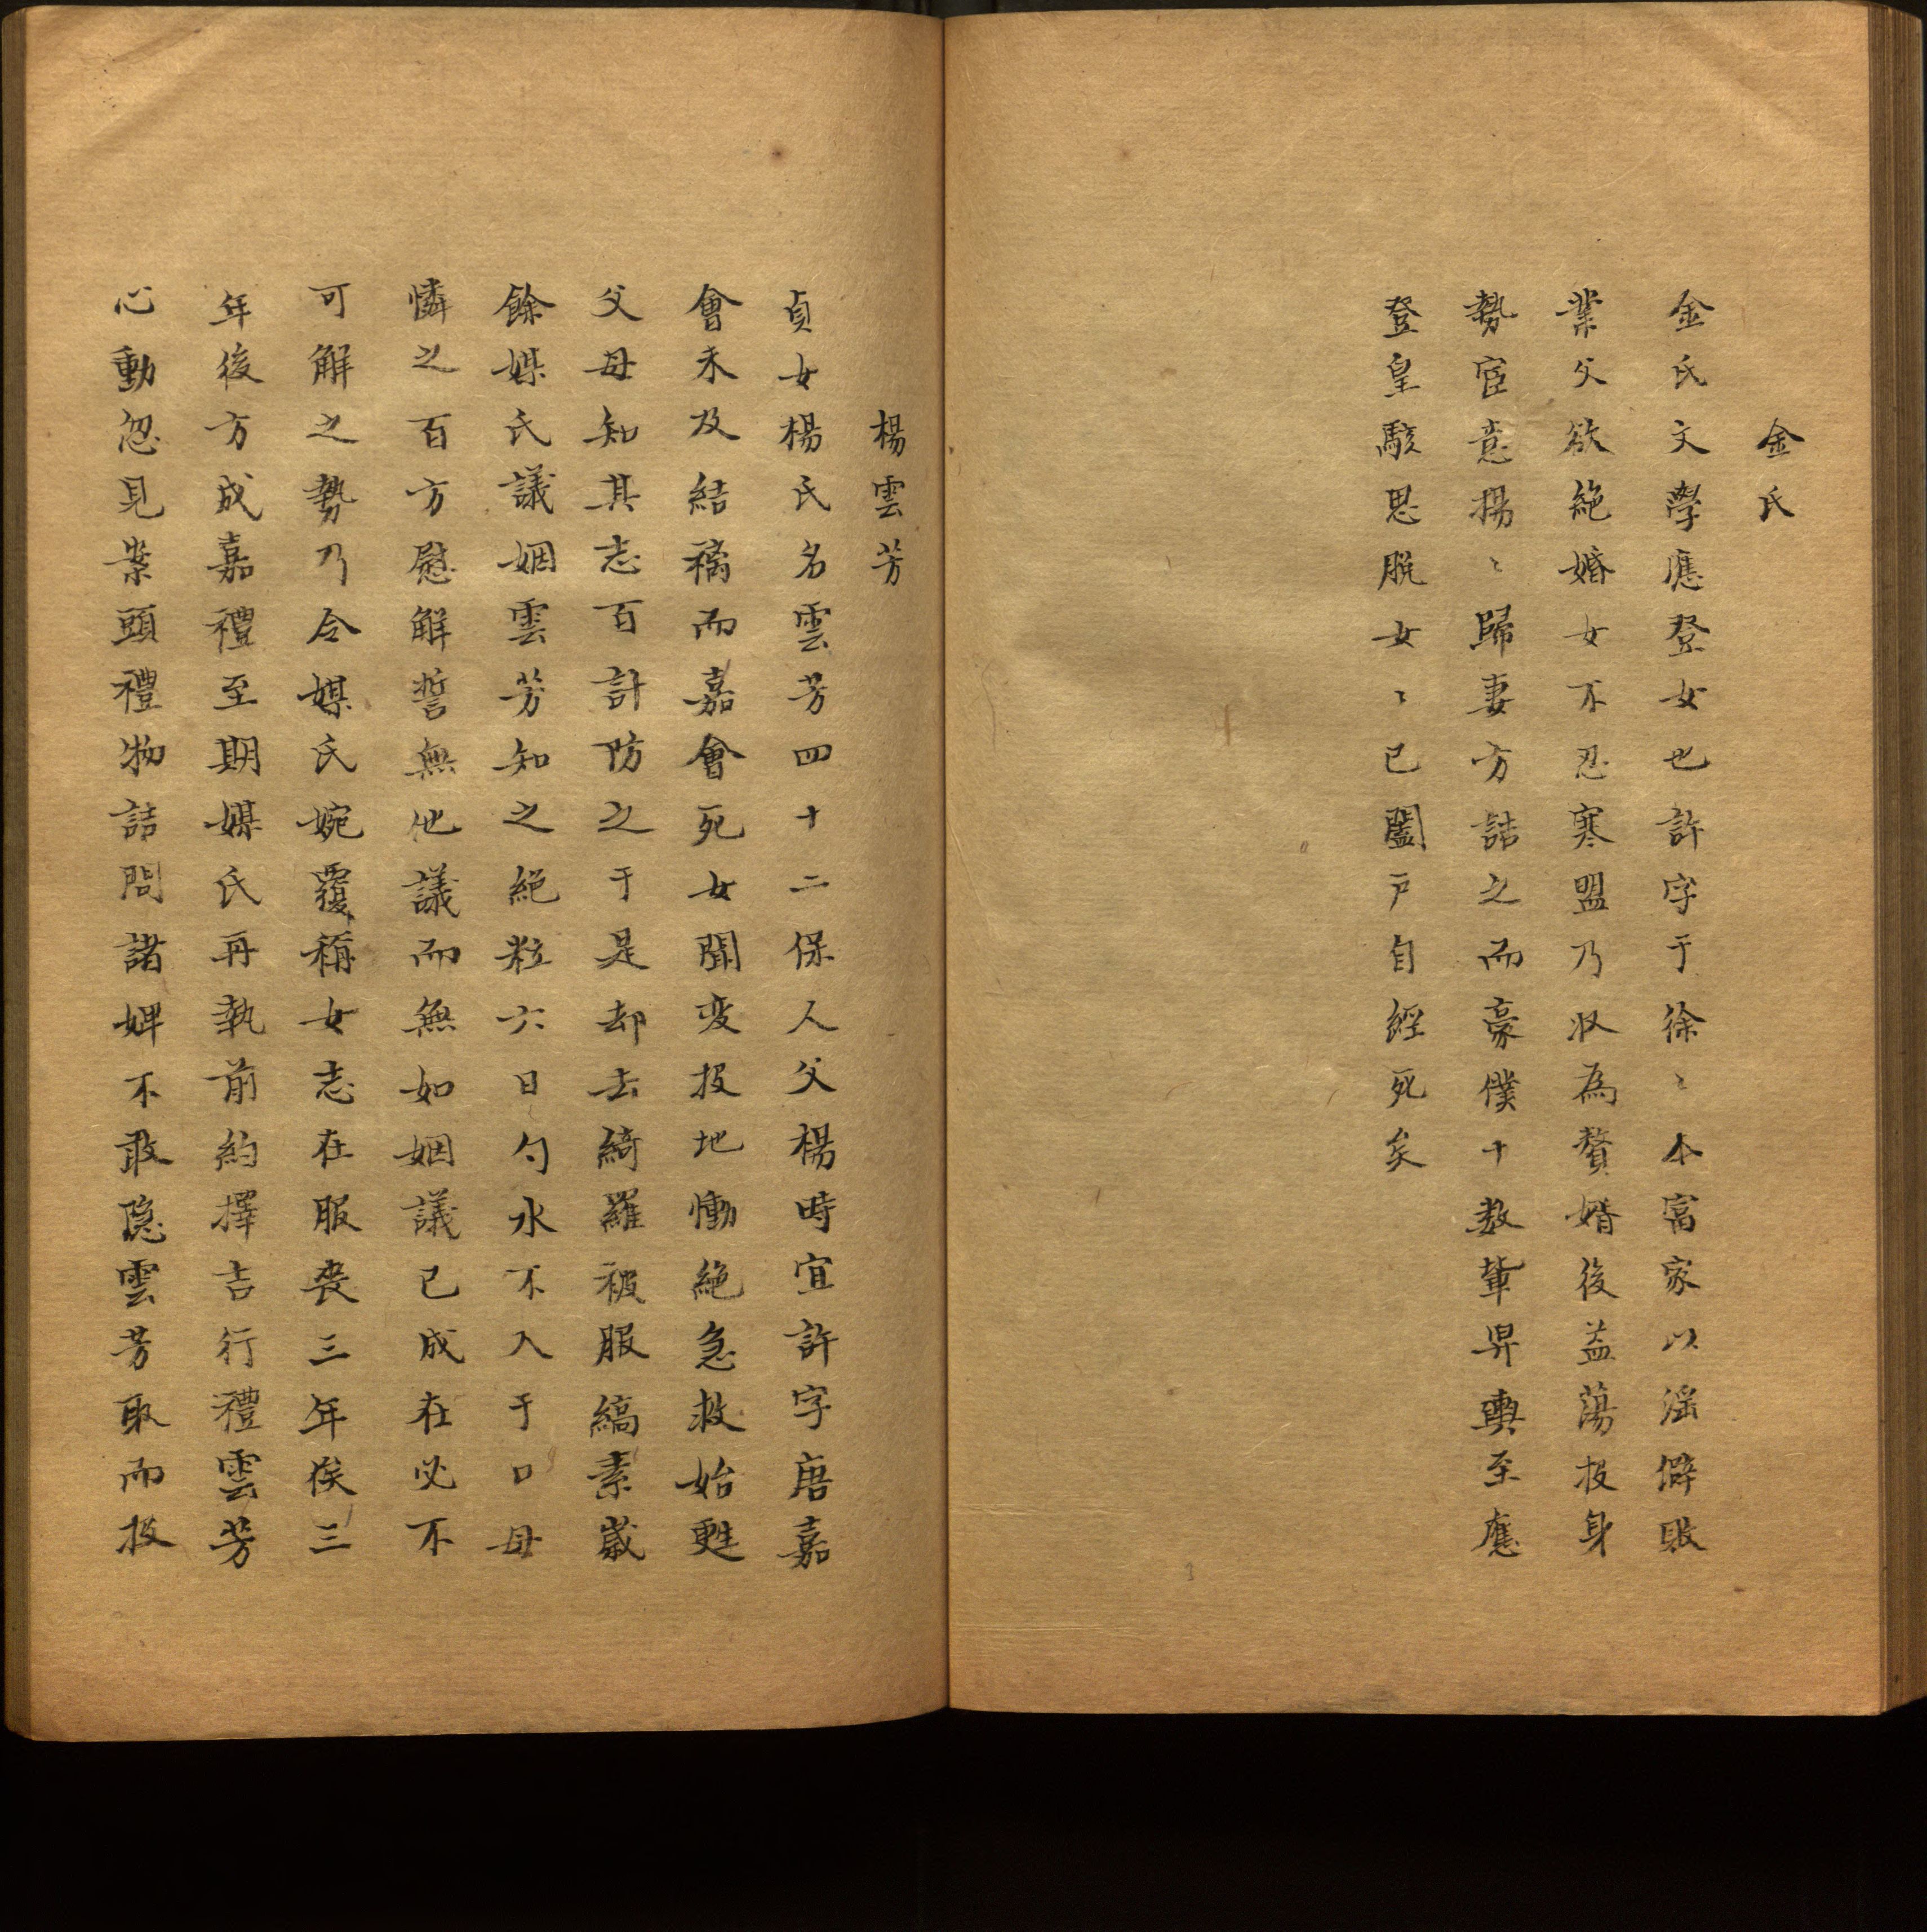 金氏
金氏文學應登女也許字于徐〻本富家以淫僻敗
業父欲絶婚女不忍寒盟乃収為贅婿後益蕩投身
勢宦意揚〻歸妻方詰之而豪僕十数輩舁輿至應
登皇駭思脱女〻已闔戸自經死矣
楊雲芳
貞女楊氏名雲芳四十二保人父楊時宜許字唐嘉
會未及結褵而嘉會死女聞変投地慟絶急救始甦
父母知其志百計防之于是却去綺羅被服縞素歲
餘媒氏議姻雲芳知之絶粒六日勺水不入于口母
憐之百方慰解誓無他議而無如姻議已成在必不
可解之勢乃令媒氏婉覆稱女志在服丧三年俟三
年後方成嘉禮至期媒氏再執前約擇吉行禮雲芳
心動忽見案頭禮物詰問諸婢不敢隠雲芳取而投